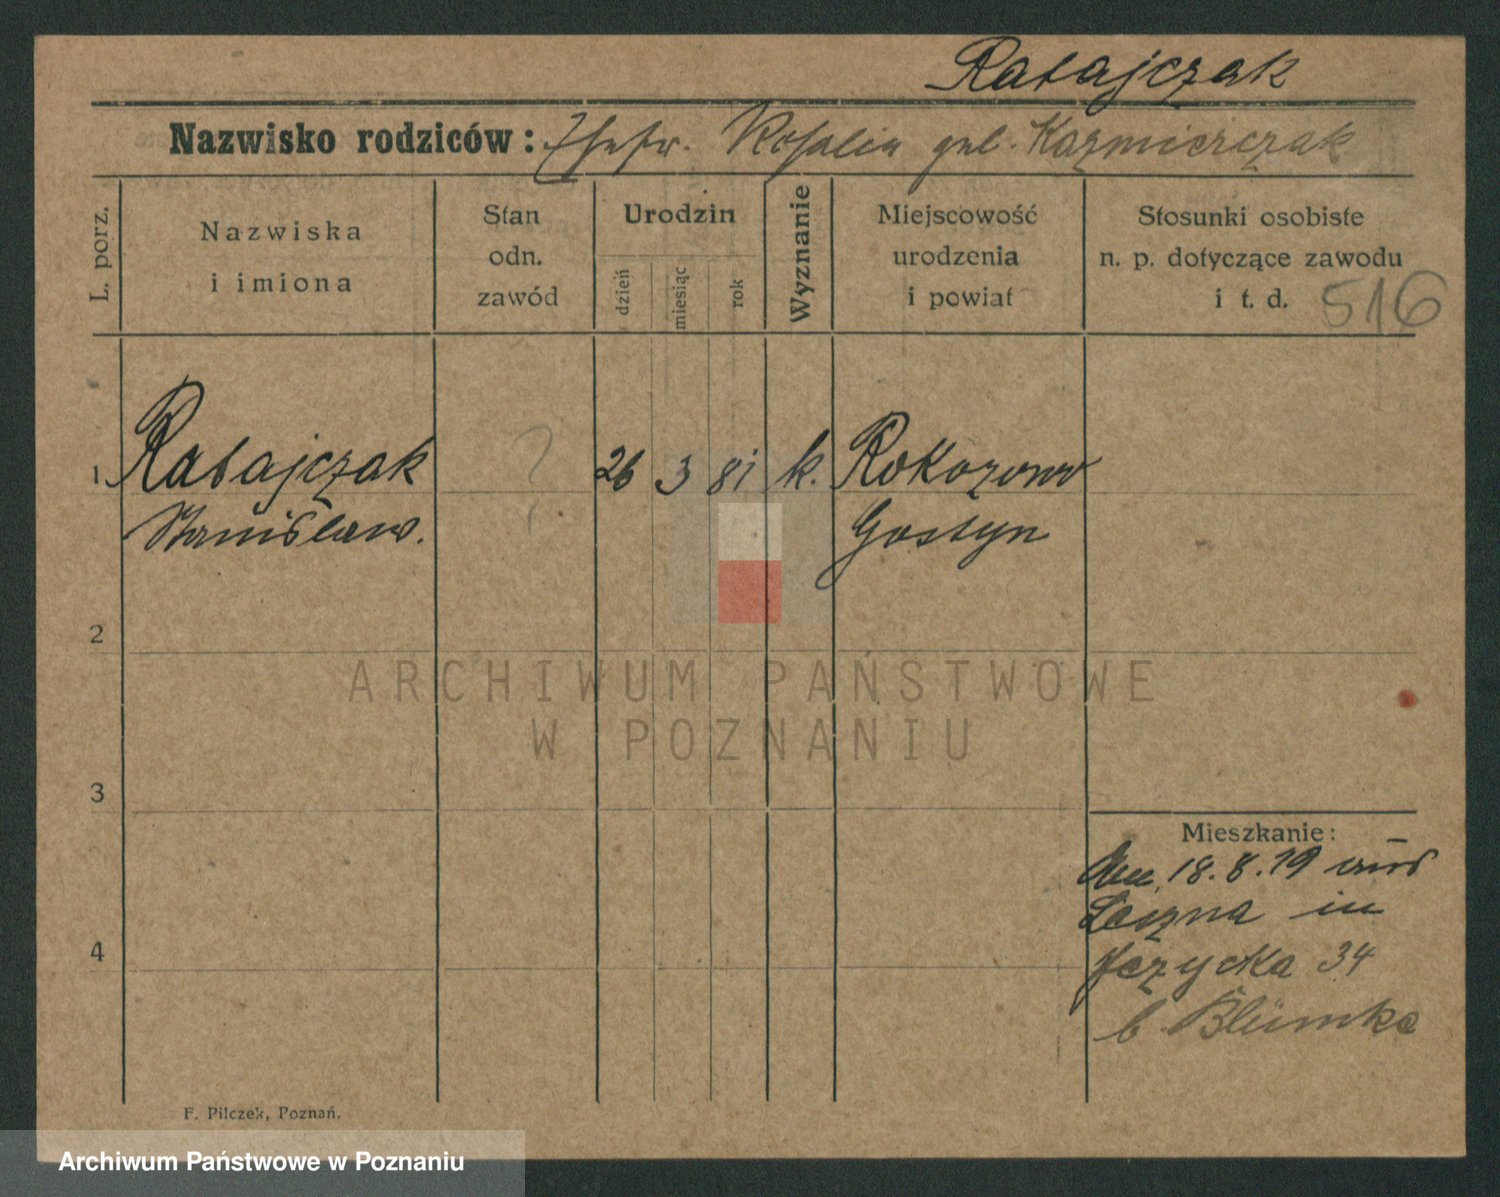 Ratajczak
Nazwisko rodziców: Ehefr. Rosalia geb. Kazmierczak
L. porz.
Nazwiska
i imiona
Stan
odn.
zawód
Urodzin
dzień
miesiąc
rok
Wyznanie
Miejscowość
urodzenia
i powiat
Stosunki osobiste
n. p. dotyczące zawodu
i t. d.
516
1. Ratajczak ? 26 3 81 k. Rokozowo
Stanislaw. Gostyn
2
3
4
Mieszkanie:
18.8.19 aus
in
Jezycka 34
b. Blümke
F. Pilczek, Poznań.
ARCHIWUM PAŃSTWOWE
W POZNANIU
Archiwum Państwowe w Poznaniu